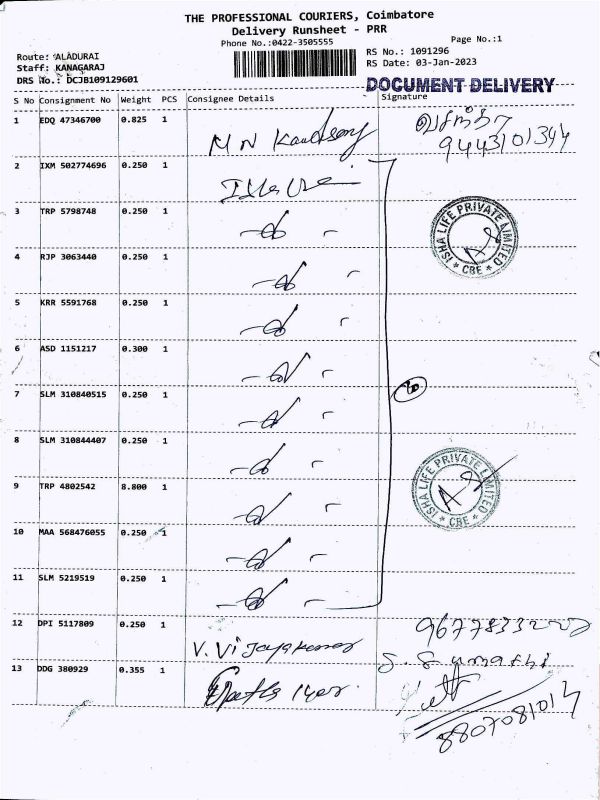 THE PROFESSIONAL COURIERS, Coimbatore
Delivery Runsheet - PRR
Phone No.:0422-3505555
Page No.:1
Route: ALADURAI
RS No.: 1091296
Staff: KANAGARAJ
RS Date: 03-Jan-2023
DRS No.: DCJB109129601
DOCUMENT DELIVERY
S No Consignment No Weight PCS Consignee Details Signature
1 EDQ 47346700 0.825 1 M N
2 IXM 502774696 0.250 1
3 TRP 5798748 0.250 1
ISHA LIFE PRIVATE LIMITED * CBE *
4 RJP 3063440 0.250 1
5 KRR 5591768 0.250 1
6 ASD 1151217 0.300 1
7 SLM 310840515 0.250 1
8 SLM 310844407 0.250 1
ISHA LIFE PRIVATE LIMITED * CBE *
9 TRP 4802542 8.800 1
10 MAA 568476055 0.250 1
11 SLM 5219519 0.250 1
12 DPI 5117809 0.250 1 V. Vijayakumar
S. Sumathi
13 DDG 380929 0.355 1
8807081014